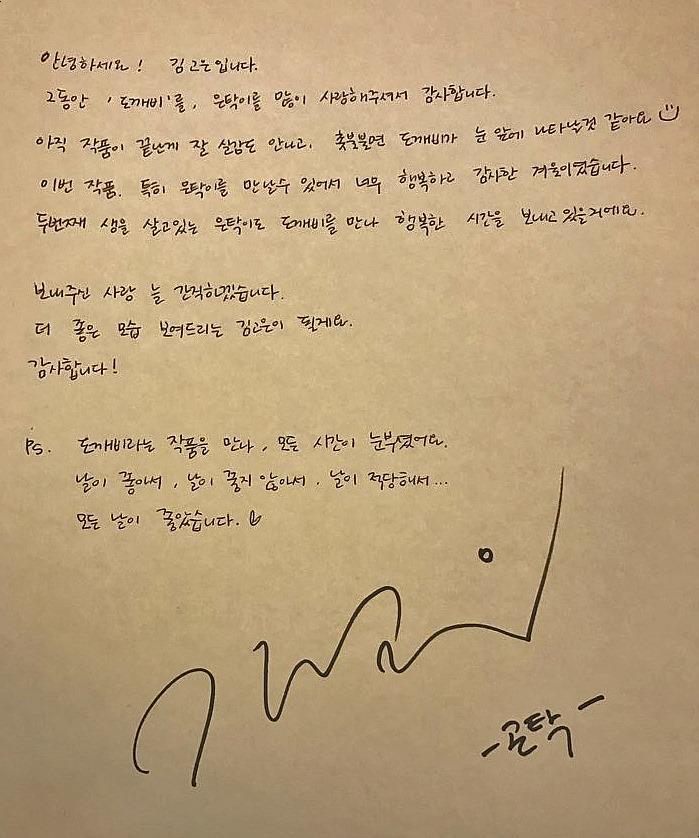 안녕하세요! 김고은입니다.
그동안 '도깨비'를, 은탁이를 많이 사랑해주셔서 감사합니다.
아직 작품이 끝난게 잘 실감도 안나고, 촛불불면 도깨비가 눈 앞에 나타날것 같아요
이번 작품. 특히 은탁이를 만날수 있어서 너무 행복하고 감사한 겨울이였습니다.
두번째 생을 살고있는 은탁이도 도깨비를 만나 행복한 시간을 보내고 있을거에요.
보내주신 사랑 늘 간직하겠습니다.
더 좋은 모습 보여드리는 김고은이 될게요.
감사합니다!
Ps. 도깨비라는 작품을 만나, 모든 시간이 눈부셨어요.
날이 좋아서, 날이 좋지 않아서, 날이 적당해서...
모든 날이 좋았습니다.
-곤탁-